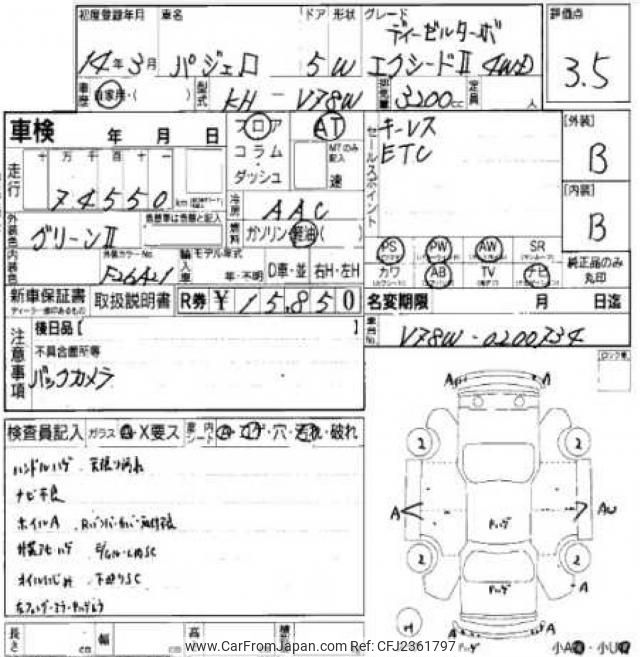 初度登録年月 車名 ドア 形状 グレード 評価点
ディーゼルターボ
14年3月 パジェロ 5W エクシードⅡ 4WD 3.5
車歴 自家用・( ) 型式 KH-V78W 排気量 3200cc 定員 人
車検 年 月 日
フロア AT
コラム・
ダッシュ
MTのみ記入
速
セールスポイント
キーレス
ETC
[外装]
B
[内装]
B
走行 十 万 千 百 十 一
74550 km
冷房 AAC
外装色 グリーンⅡ
燃料 ガソリン・軽油( )
PS PW AW SR
カワ AB TV ナビ
純正品のみ
丸印
内装色 外装カラーNo. 輸入車 モデル年式
年・不明 D車・並 右H・左H
新車保証書 取扱説明書 R券 ¥15,850
名変期限 月 日迄
車台No. V78W-0200734
注意事項
後日品 [ ]
不具合箇所等
バックカメラ
検査員記入 ガラス A・X要ス 内 シート コゲ・穴・汚れ・破れ
ハンドルハゲ 天張り汚れ
ナビ不良
ホイルA
下廻りSC
A A
2 2
A Aw
ハゲ
2 2
ハゲ
A A
長さ cm 幅 cm 高
小A 小U
www.CarFromJapan.com Ref: CFJ2361797